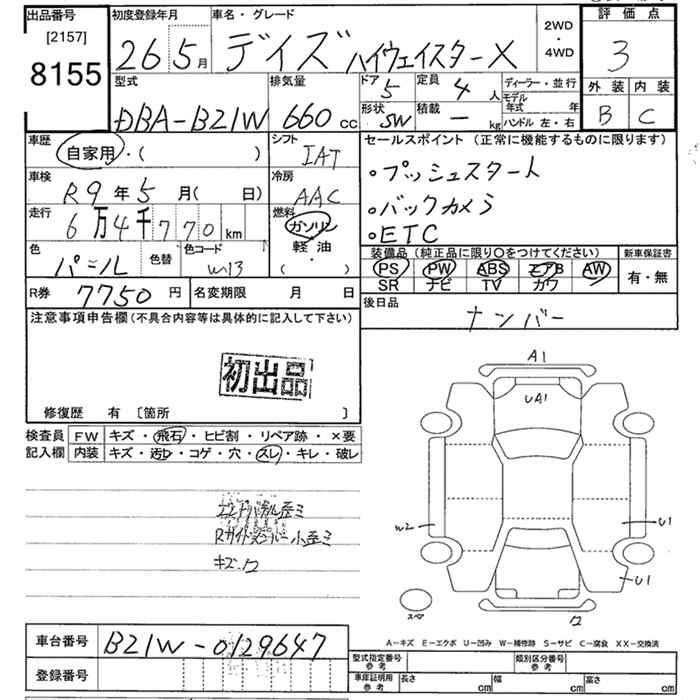 出品番号
[2157]
8155
初度登録年月
26 5月
車名・グレード
デイズ ハイウェイスターX
2WD
・
4WD
評価点
3
外装 内装
B C
型式
DBA-B21W
排気量
660cc
ドア 5
定員 4人
形状 SW
積載 ー kg
ディーラー・並行
モデル年式 年
ハンドル 左・右
車歴
自家用・( )
シフト
IAT
セールスポイント (正常に機能するものに限ります)
・プッシュスタート
・バックカメラ
・ETC
車検
R9年5月( 日)
冷房
AAC
走行
6万4千770km
燃料
ガソリン
軽油
( ・ )
色
パール
色替
色コード
W13
装備品 (純正品に限り〇をつけてください)
PS PW ABS エアB AW
SR ナビ TV カワ
新車保証書
有・無
R券 7750円
名変期限 月 日
後日品
ナンバー
注意事項申告欄(不具合内容等は具体的に記入して下さい)
初出品
修復歴 有 〔箇所 〕
検査員記入欄
FW キズ・飛石・ヒビ割・リペア跡・×要
内装 キズ・汚レ・コゲ・穴・スレ・キレ・破レ
エンドパネル歪ミ
小歪ミ
キズ・ワ
A1
UA1
W2
U1
U1
ワ
スペア
A-キズ E-エクボ U-凹み W-補修跡 S-サビ C-腐食 XX-交換済
車台番号 B21W-0129647
登録番号
型式指定番号 参考
類別区分番号 参考
車庫証明用 参考
長さ cm
幅 cm
高さ cm